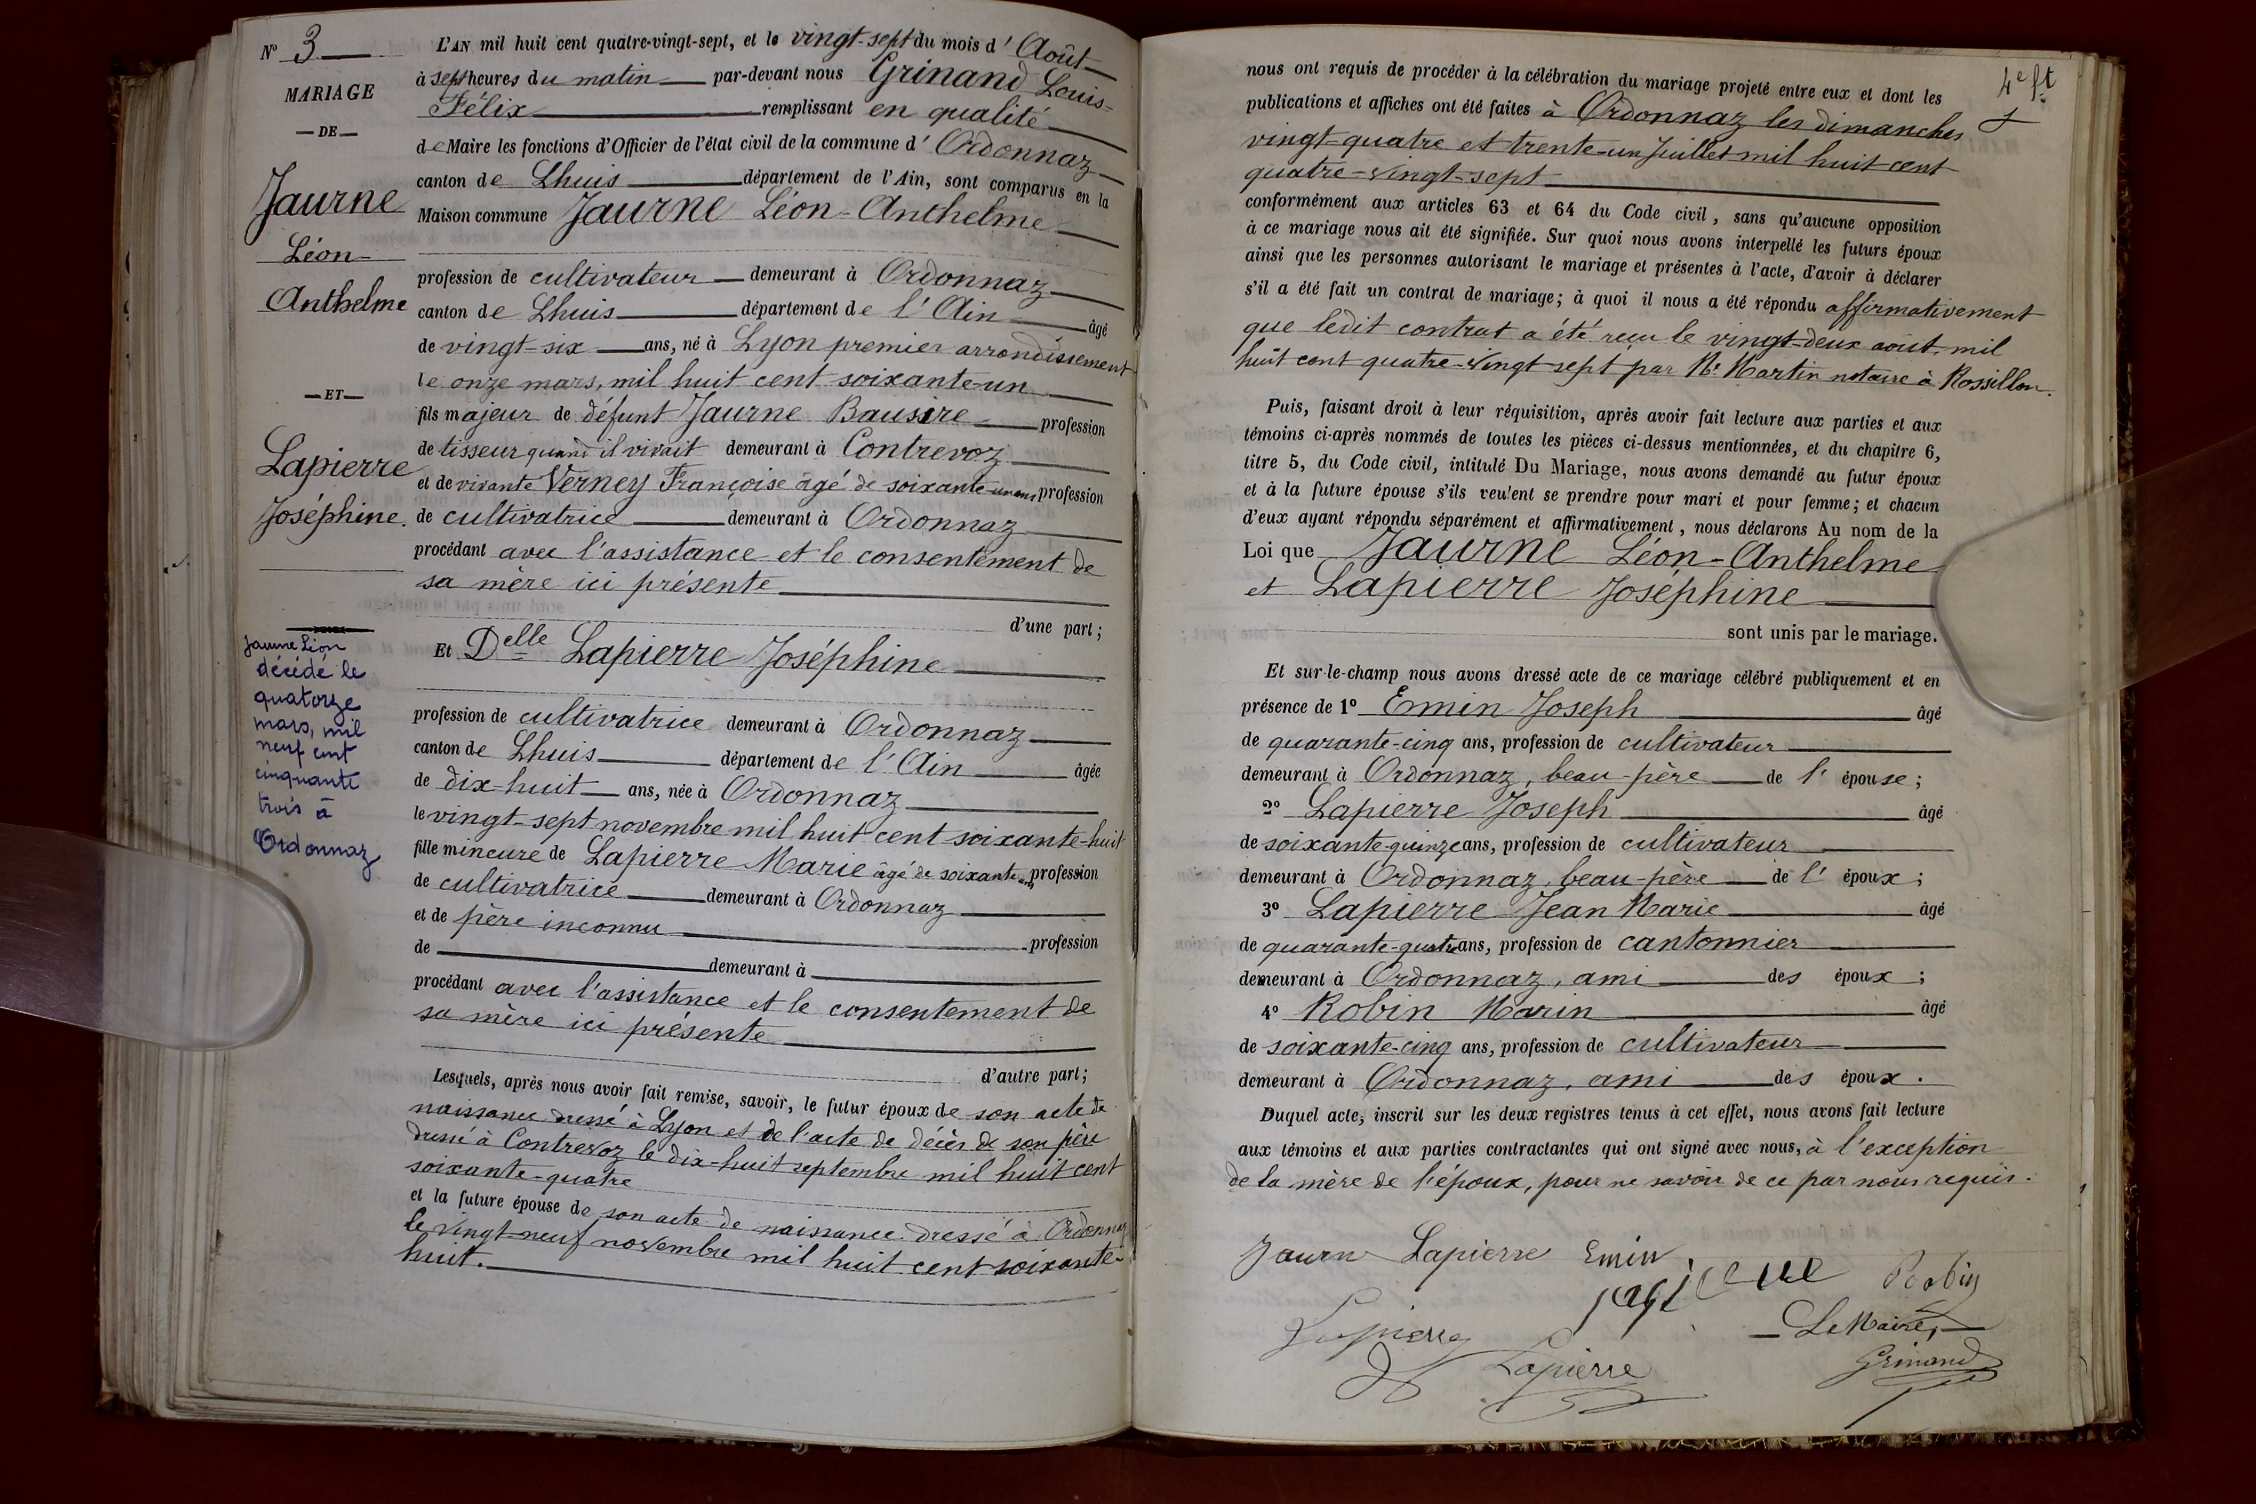 N° 3
MARIAGE
— DE —
Jaurne
Léon-
Anthelme
— ET —
Lapierre
Joséphine.
Jaurne Léon
décédé le
quatorze
mars, mil
neuf cent
cinquante
trois à
Ordonnaz
L'AN mil huit cent quatre-vingt-sept, et le vingt-sept du mois d' Août
à sept heures du matin par-devant nous Grinand Louis-
Félix remplissant en qualité
de Maire les fonctions d'Officier de l'état civil de la commune d' Ordonnaz
canton de Lhuis département de l'Ain, sont comparus en la
Maison commune Jaurne Léon-Anthelme
profession de cultivateur demeurant à Ordonnaz
canton de Lhuis département de l'Ain âgé
de vingt-six ans, né à Lyon premier arrondissement
le onze mars, mil huit cent soixante-un
fils majeur de défunt Jaurne Bausire profession
de tisseur quand il vivait demeurant à Contrevoz
et de vivante Verney Françoise âgé de soixante-un ans profession
de cultivatrice demeurant à Ordonnaz
procédant avec l'assistance et le consentement de
sa mère ici présente
d'une part;
Et Delle Lapierre Joséphine
profession de cultivatrice demeurant à Ordonnaz
canton de Lhuis département de l'Ain âgée
de dix-huit ans, née à Ordonnaz
le vingt-sept novembre mil huit cent soixante-huit
fille mineure de Lapierre Marie âgé de soixante ans profession
de cultivatrice demeurant à Ordonnaz
et de père inconnu profession
de demeurant à
procédant avec l'assistance et le consentement de
sa mère ici présente
d'autre part;
Lesquels, après nous avoir fait remise, savoir, le futur époux de son acte de
naissance dressé à Lyon et de l'acte de décès de son père
dressé à Contrevoz le dix-huit septembre mil huit cent
soixante-quatre
et la future épouse de son acte de naissance dressé à Ordonnaz
le vingt-neuf novembre mil huit cent soixante-
huit.
4e ft
nous ont requis de procéder à la célébration du mariage projeté entre eux et dont les
publications et affiches ont été faites à Ordonnaz les dimanches
vingt-quatre et trente-un Juillet mil huit cent
quatre-vingt-sept
conformément aux articles 63 et 64 du Code civil, sans qu'aucune opposition
à ce mariage nous ait été signifiée. Sur quoi nous avons interpellé les futurs époux
ainsi que les personnes autorisant le mariage et présentes à l'acte, d'avoir à déclarer
s'il a été fait un contrat de mariage; à quoi il nous a été répondu affirmativement
que ledit contrat a été reçu le vingt-deux août, mil
huit cent quatre-vingt sept par Me Martin notaire à Rossillon.
Puis, faisant droit à leur réquisition, après avoir fait lecture aux parties et aux
témoins ci-après nommés de toutes les pièces ci-dessus mentionnées, et du chapitre 6,
titre 5, du Code civil, intitulé Du Mariage, nous avons demandé au futur époux
et à la future épouse s'ils veulent se prendre pour mari et pour femme; et chacun
d'eux ayant répondu séparément et affirmativement, nous déclarons Au nom de la
Loi que Jaurne Léon-Anthelme
et Lapierre Joséphine
sont unis par le mariage.
Et sur-le-champ nous avons dressé acte de ce mariage célébré publiquement et en
présence de 1° Emin Joseph âgé
de quarante-cinq ans, profession de cultivateur
demeurant à Ordonnaz, beau-père de l' épouse;
2° Lapierre Joseph âgé
de soixante-quinze ans, profession de cultivateur
demeurant à Ordonnaz, beau-père de l' époux;
3° Lapierre Jean Marie âgé
de quarante-quatre ans, profession de cantonnier
demeurant à Ordonnaz, ami des époux;
4° Robin Marin âgé
de soixante-cinq ans, profession de cultivateur
demeurant à Ordonnaz, ami des époux.
Duquel acte, inscrit sur les deux registres tenus à cet effet, nous avons fait lecture
aux témoins et aux parties contractantes qui ont signé avec nous, à l'exception
de la mère de l'époux, pour ne savoir de ce par nous requis.
Jaurn Lapierre Emin
Robin
Lapierre
Le Maire,
Lapierre
Grinand